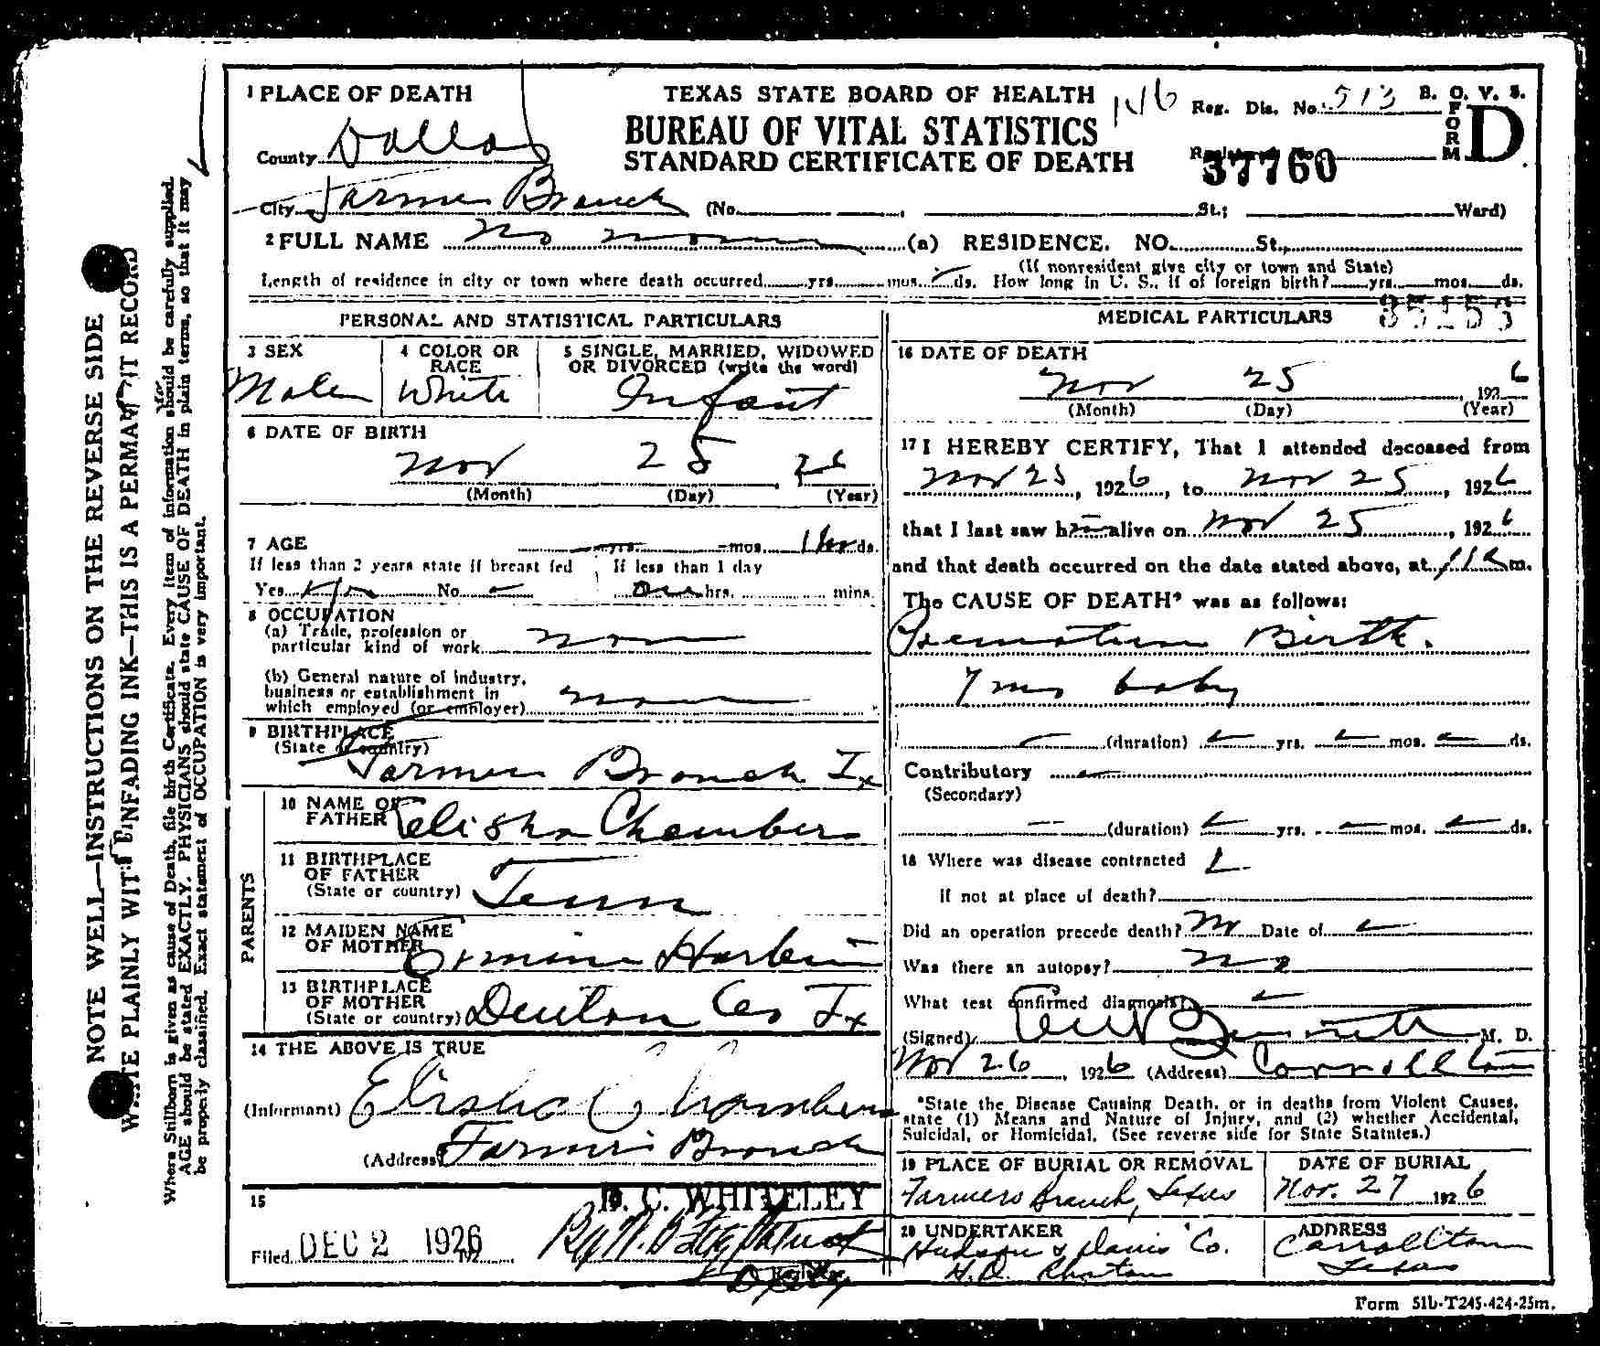 1 PLACE OF DEATH
TEXAS STATE BOARD OF HEALTH
Reg. Dis. No. 513
B. O. V. S.
BUREAU OF VITAL STATISTICS
FORM D
County Dallas
STANDARD CERTIFICATE OF DEATH
37760
City Farmers Branch (No. St.; Ward)
2 FULL NAME No name (a) RESIDENCE. NO. St.,
(If nonresident give city or town and State)
Length of residence in city or town where death occurred yrs. mos. ds. How long in U. S., if of foreign birth? yrs. mos. ds.
PERSONAL AND STATISTICAL PARTICULARS
3 SEX
Male
4 COLOR OR RACE
White
5 SINGLE, MARRIED, WIDOWED
OR DIVORCED (write the word)
Infant
6 DATE OF BIRTH
Nov 25 26
(Month) (Day) (Year)
7 AGE yrs. mos. 1 hr ds.
If less than 2 years state if breast fed
Yes No
If less than 1 day
One hrs. mins.
8 OCCUPATION
(a) Trade, profession or
particular kind of work None
(b) General nature of industry,
business or establishment in
which employed (or employer) None
9 BIRTHPLACE
(State or country)
Farmers Branch Tx
PARENTS
10 NAME OF
FATHER Elisha Chambers
11 BIRTHPLACE
OF FATHER
(State or country) Tenn
12 MAIDEN NAME
OF MOTHER
13 BIRTHPLACE
OF MOTHER
(State or country) Denton Co Tx
14 THE ABOVE IS TRUE
(Informant) Elisha Chambers
(Address) Farmers Branch
15
D. C. WHITELEY
Filed DEC 2 1926
MEDICAL PARTICULARS
16 DATE OF DEATH
Nov 25, 1926
(Month) (Day) (Year)
17 I HEREBY CERTIFY, That I attended deceased from
Nov 25, 1926, to Nov 25, 1926
that I last saw him alive on Nov 25, 1926
and that death occurred on the date stated above, at m.
The CAUSE OF DEATH* was as follows:
Premature Birth.
7 mos baby
(duration) yrs. mos. ds.
Contributory
(Secondary)
(duration) yrs. mos. ds.
18 Where was disease contracted
if not at place of death?
Did an operation precede death? No Date of
Was there an autopsy? No
What test confirmed diagnosis?
(Signed) Bennett M. D.
Nov 26, 1926 (Address) Carrollton
*State the Disease Causing Death, or in deaths from Violent Causes,
state (1) Means and Nature of Injury, and (2) whether Accidental,
Suicidal, or Homicidal. (See reverse side for State Statutes.)
19 PLACE OF BURIAL OR REMOVAL
Farmers Branch, Texas
DATE OF BURIAL
Nov. 27 1926
20 UNDERTAKER
Hudson & Davis Co.
ADDRESS
Carrollton
Texas
Form 51b-T245-424-25m.
NOTE WELL—INSTRUCTIONS ON THE REVERSE SIDE
WRITE PLAINLY WITH UNFADING INK—THIS IS A PERMANENT RECORD
Where Stillborn is given as cause of Death, file birth Certificate. Every item of information should be carefully supplied.
AGE should be stated EXACTLY. PHYSICIANS should state CAUSE OF DEATH in plain terms, so that it may
be properly classified. Exact statement of OCCUPATION is very important.